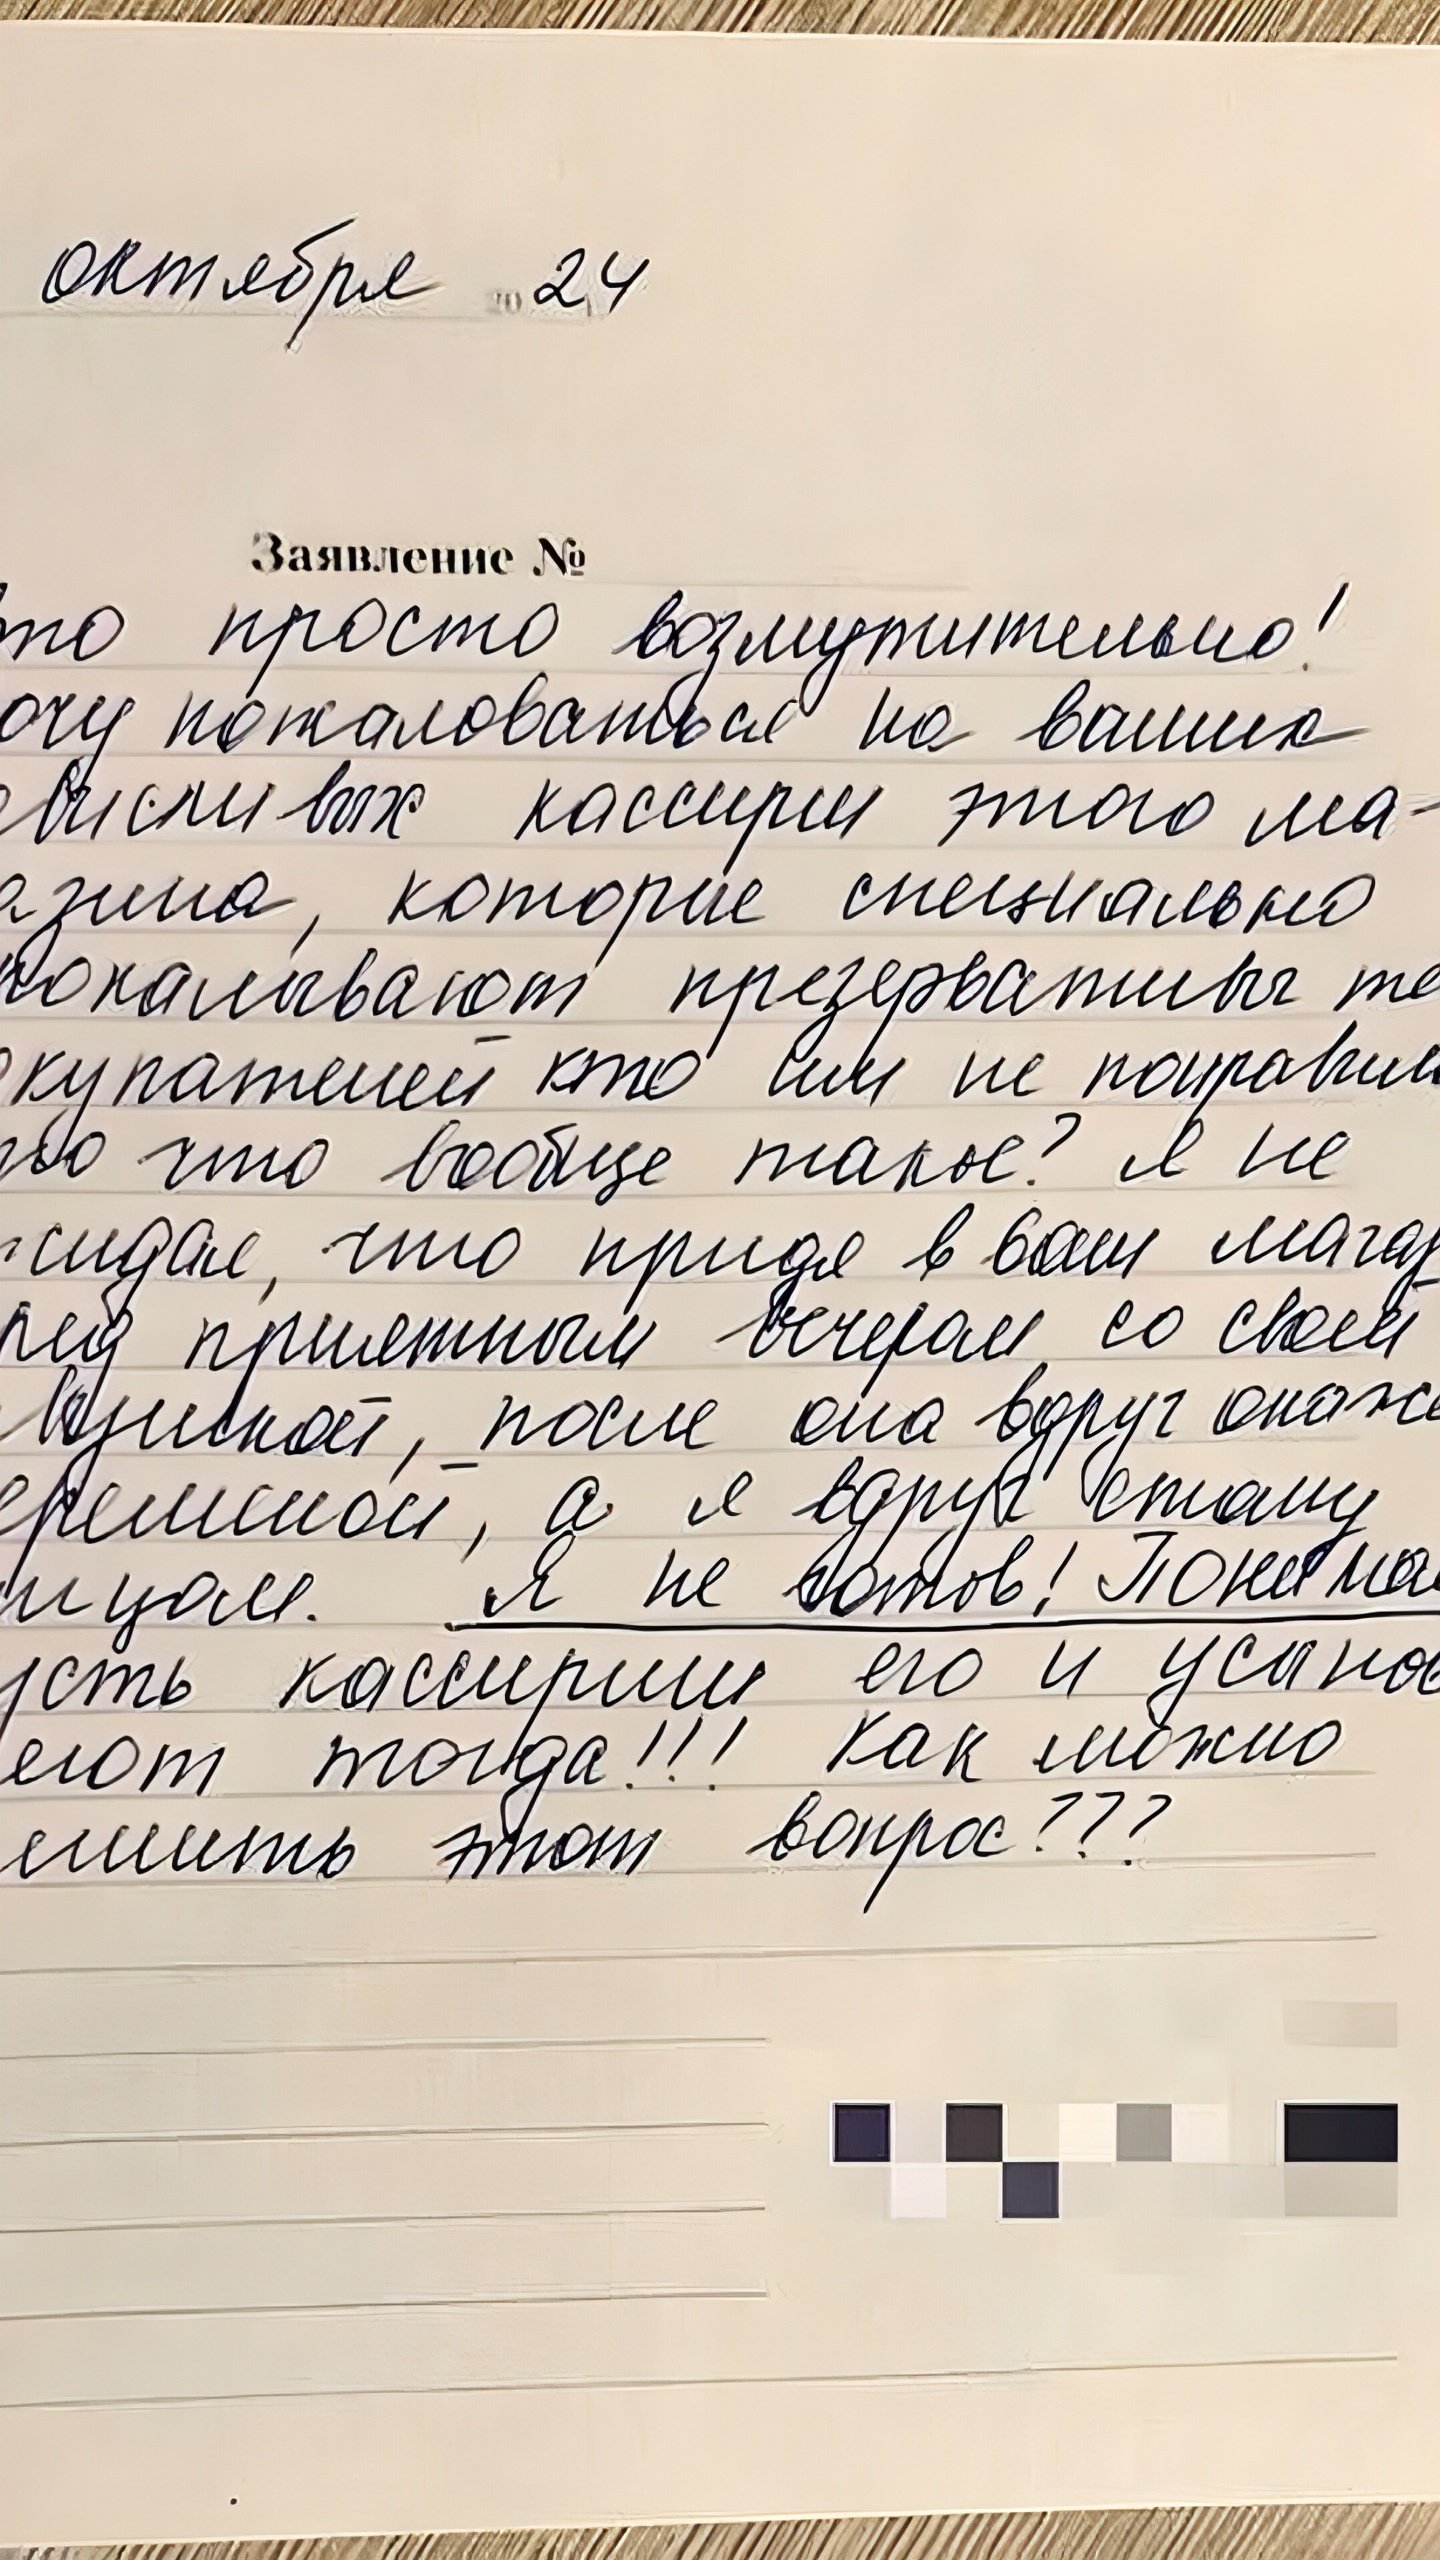 октября 2024
Заявление №
то просто возмутительно!
очу пожаловаться на ваших
ависливых кассирш этого ма-
азина, которые специально
рокалывают презервативы те
окупателей кто им не понравил
то что вообще такое? Я не
жидал, что придя в ваш магаз
ред приятным вечером со своей
евушкой, после она вдруг окаже
еременной, а я вдруг стану
тцом. Я не готов! Понимае
усть кассирши его и усынов
еют тогда!!! Как можно
ешить этот вопрос???